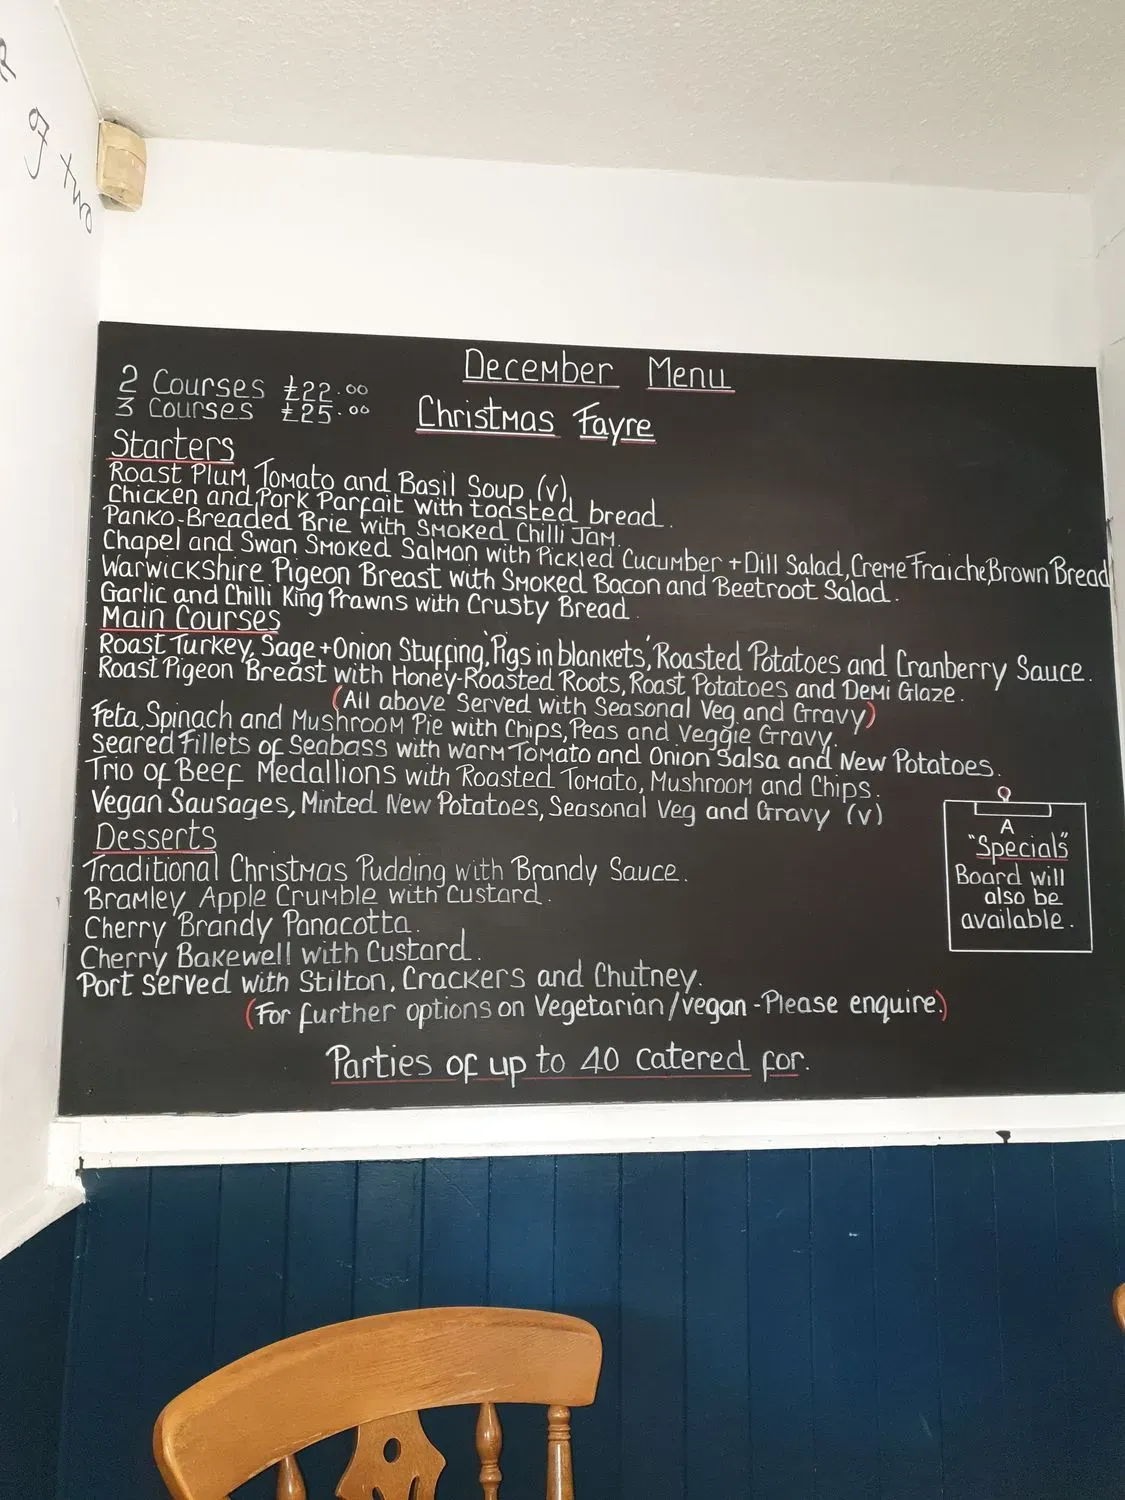 of two
December Menu
2 Courses £22.00
3 Courses £25.00
Christmas Fayre
Starters
Roast Plum Tomato and Basil Soup (v)
Chicken and Pork Parfait with toasted bread.
Panko-Breaded Brie with Smoked Chilli Jam.
Chapel and Swan Smoked Salmon with Pickled Cucumber + Dill Salad, Creme Fraiche, Brown Bread
Warwickshire Pigeon Breast with Smoked Bacon and Beetroot Salad.
Garlic and Chilli King Prawns with Crusty Bread.
Main Courses
Roast Turkey, Sage + Onion Stuffing, 'Pigs in blankets', Roasted Potatoes and Cranberry Sauce.
Roast Pigeon Breast with Honey-Roasted Roots, Roast Potatoes and Demi Glaze.
(All above Served with Seasonal Veg and Gravy)
Feta, Spinach and Mushroom Pie with Chips, Peas and Veggie Gravy.
Seared Fillets of Seabass with warm Tomato and Onion Salsa and New Potatoes.
Trio of Beef Medallions with Roasted Tomato, Mushroom and Chips.
Vegan Sausages, Minted New Potatoes, Seasonal Veg and Gravy (v)
Desserts
Traditional Christmas Pudding with Brandy Sauce.
Bramley Apple Crumble with Custard.
Cherry Brandy Panacotta.
Cherry Bakewell with Custard.
Port served with Stilton, Crackers and Chutney.
(For further options on Vegetarian/vegan - Please enquire.)
Parties of up to 40 catered for.
A
"Specials"
Board will
also be
available.